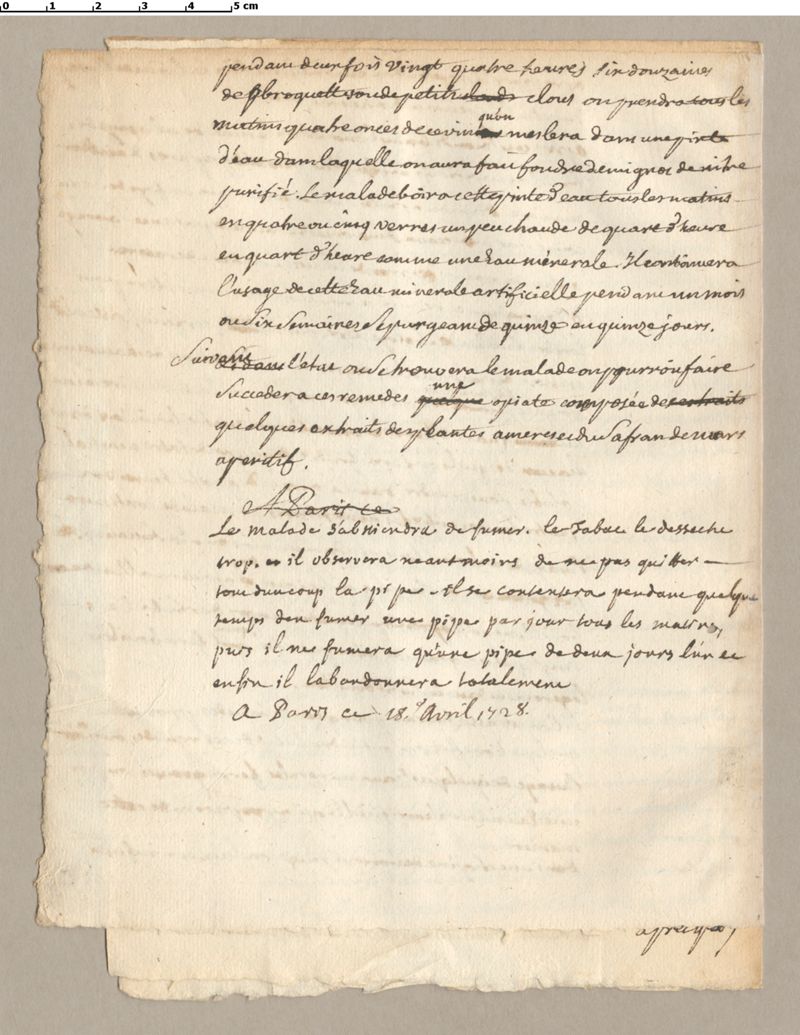 0 1 2 3 4 5 cm
pendant deux fois vingt quatre heures six douzaines
de broquettes ou de petits clouds clous on prendra tous les
matins quatre onces de ce vin qu'on meslera dans une pinte
d'eau dans laquelle on aura fait fondre demi gros de nitre
purifié. Le malade boira cette pinte d'eau tous les matins
en quatre ou cinq verres un peu chaude de quart d'heure
en quart d'heure comme une eau minerale. Il continuera
l'usage de cette eau minerale artificielle pendant un mois
ou six semaines se purgeant de quinze en quinze jours.
Suivant l'état ou se trouvera le malade on pourroit faire
succeder a ces remedes quelque une opiate composée de extraits
quelques extraits des plantes ameres et du safran de mars
aperitif.
A Paris ce
Le malade s'abstiendra de fumer. le Tabac le desseche
trop. et il observera neantmoins de ne pas quitter
tout d'un coup la pipe. il se contentera pendant quelque
temps d'en fumer une pipe par jour tous les matins,
puis il ne fumera qu'une pipe de deux jours l'un et
enfin il l'abandonnera totalement
A Paris ce 18.e Avril 1728.